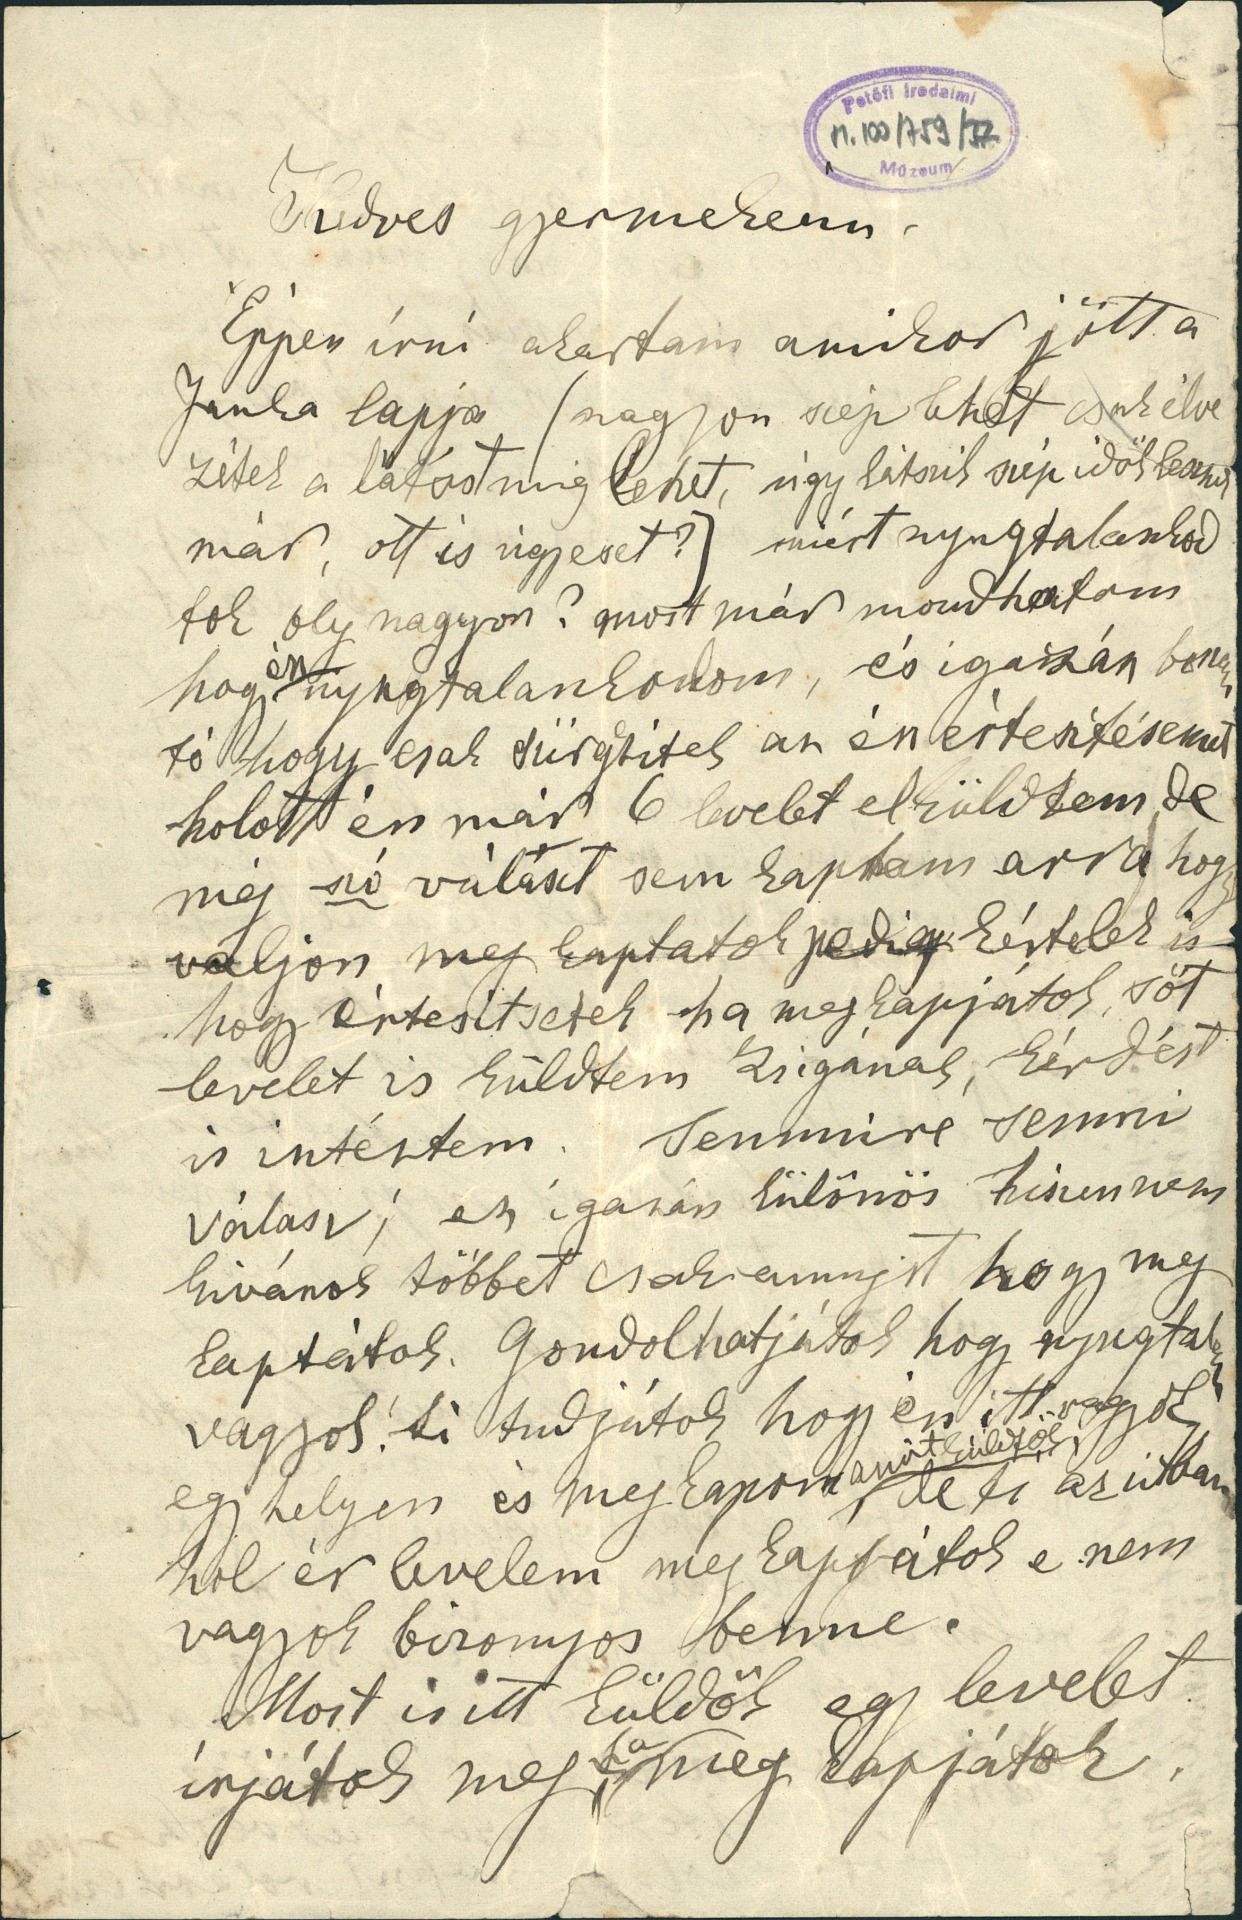 Petőfi Irodalmi
n. 100/759/32
Múzeum
Kedves gyermekeim.
Éppen írni akartam amikor jött a
Janka lapja (nagyon szép lehet csak élve
zétek a látást mig lehet, úgy látszik szép idők lesznek
már, ott is ugyeset?) miért nyugtalankod
tok oly nagyon? most már mondhatom
hogy én nyugtalankodom, és igazán bosszan
tó hogy csak sürgőitek az én értesítésemet
holott én már 6 levelet elküldtem de
még szó választ sem kaptam arra hogy
valjon meg kaptatok pedig kértelek is
hogy értesitsetek ha megkapjátok, sőt
levelet is küldtem Zsigának, kérdést
is intéztem. Semmire semmi
válasz, ez igazán különös hiszen nem
kivánok többet csak annyit hogy meg
kaptátok. Gondolhatjátok hogy nyugtalan
vagyok! ti tudjátok hogy én itt vagyok
egy helyen és megkapom amit küldtök, de ti az útban
hol ér levelem meg kapjátok e nem
vagyok bizonyos benne.
Most is itt küldök egy levelet
írjátok meg ha meg kapjátok.